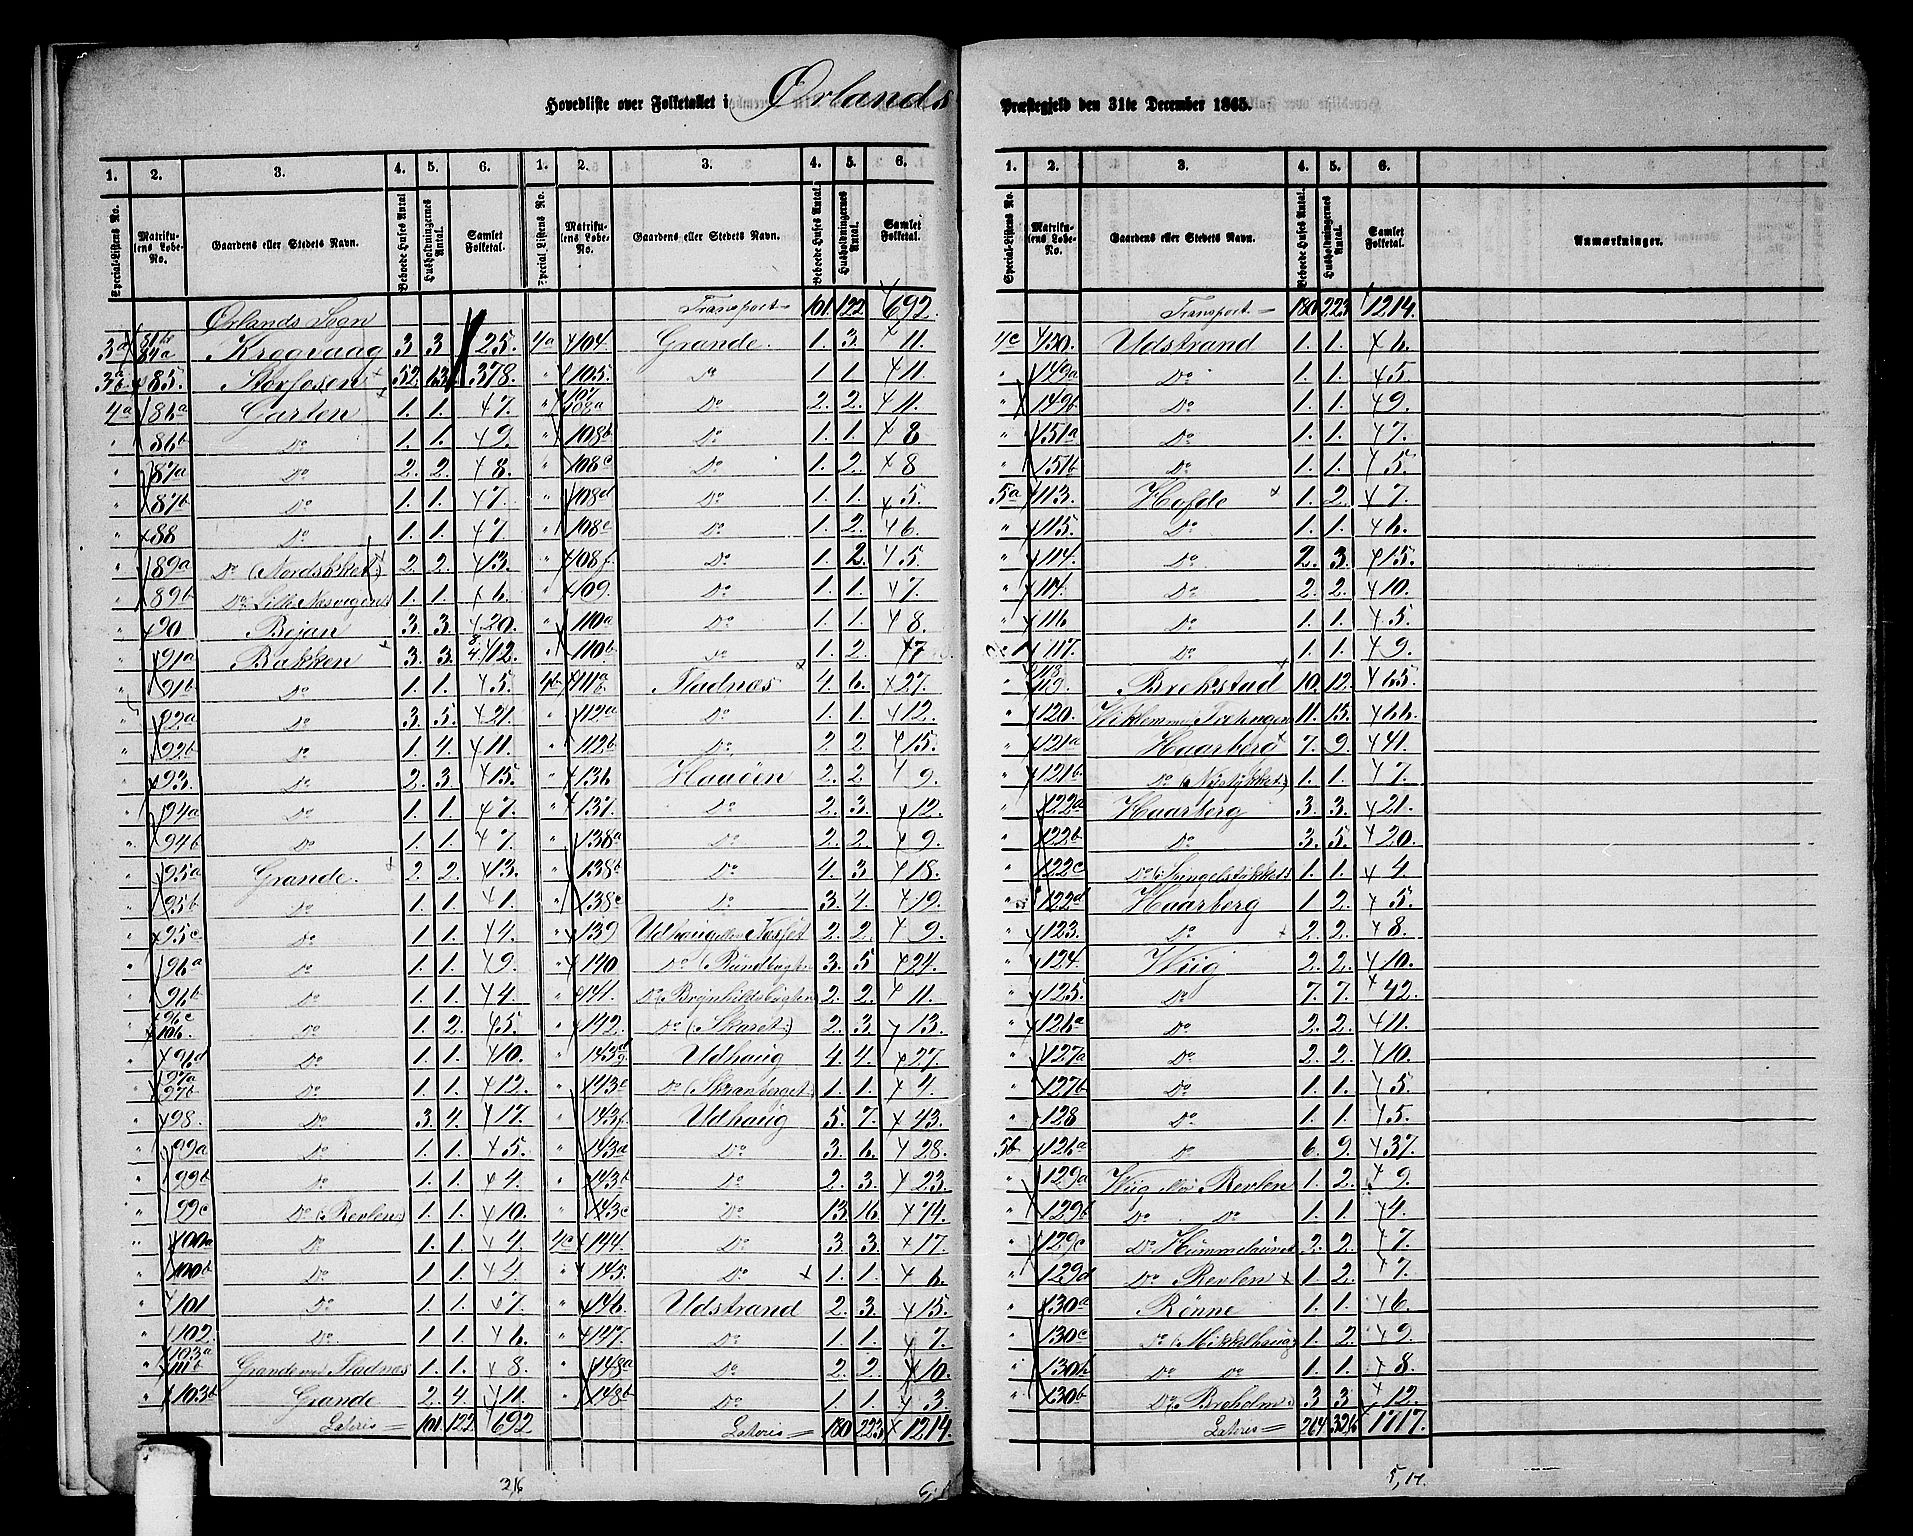 Hovedliste over Folketallet i Ørlands Præstegjeld den 31te December 1865.
1. 2. 3. 4. 5. 6. 1. 2. 3. 4. 5. 6.
Special-Listens No. Matrikulens Løbe-No. Gaardens eller Stedets Navn. Beboede Huses Antal Husholdningernes Antal. Samlet Folketal. Special Listens No. Matrikulens Løbe-No. Gaardens eller Stedets Navn. Beboede Huses Antal. Husholdningernes Antal. Samlet Folketal.
Ørlands Sogn
3a 84a Kraavaag 3 3 25.
3b 85. Storfosen 52. 63. 378.
4a 86a Garten 1. 1. 7.
" 86b Do 1. 1. 9.
" 87a Do 2. 2. 8.
" 87b Do 1. 1. 7.
" 88 Do 1. 1. 7.
" 89a Do (Nordstykket) 2. 2. 13.
" 89b Do Lille Næsvegen 1. 1. 6.
" 90 Bejan 3. 3. 20.
" 91a Bakken 3. 3. 12.
" 91b Do 1. 1. 5.
" 92a Do 3. 5. 21.
" 92b Do 1. 4. 11.
" 93. Do 2. 3. 15.
" 94a Do 1. 1. 7.
" 94b Do 1. 1. 7.
" 95a Grande. 2. 2. 13.
" 95b Do 1. 1. 1.
" 95c Do 1. 1. 4.
" 96a Do 1. 1. 9.
" 96b Do 1. 1. 4.
" 96c 106. Do 1. 2. 5.
" 96d Do 1. 1. 10.
" 97a 97b Do 1. 1. 12.
" 98. Do 3. 4. 17.
" 99a Do 1. 1. 5.
" 99b Do 1. 1. 4.
" 99c Do (Revlen) 1. 1. 10.
" 100a Do 1. 1. 4.
" 100b Do 1. 1. 4.
" 101 Do 1. 1. 7.
" 102. Do. 1. 1. 6.
" 103a 111b Grande med Fladnæs 1. 1. 8.
" 103b Grande 2. 4. 11.
Lateris = 101. 122 692.
Transport = 101. 122 692.
4a 104. Grande. 1. 3. 11.
" 105. Do 1. 1. 11.
" 107 108a Do 2. 2. 11.
" 108b Do 1. 1. 8
" 108c Do 1. 2. 8
" 108d Do 1. 1. 5.
" 108e Do 1. 2. 6.
" 108f. Do 1. 2. 5.
" 109. Do 1. 1. 7.
" 110a Do 1. 1. 8.
" 110b. Do 1. 2. 7
4b 111a Fladnæs 4. 6. 27.
" 112a Do 1. 1. 12.
" 112b Do 2. 2. 15.
" 136 Haaøen 2. 2. 9.
" 137. Do 2. 3. 12.
" 138a Do 2. 2. 9.
" 138b Do 4. 3. 18.
" 138c Do 3. 4. 19.
" 139 Udhaug 2. 2. 9.
" 140 Do (Rundbogten 3. 5 24.
" 141. Do Brynhildsbugten 2. 2. 11.
" 142. Do (Skaret) 2. 3. 13.
" 143d Udhaug 4. 4. 27.
" 143e Do (Skranberget) 1. 1. 4.
" 143f Udhaug 5. 7. 43.
" 143a Do 3. 6. 28.
" 143b Do 2. 3. 23.
" 143c Do 13. 16. 74.
4c 144. Do 3. 3. 17.
" 145. Do 1. 1. 6.
" 146. Udstrand 2. 3. 15.
" 147. Do 1. 1. 7.
" 148a Do 2. 2. 10.
" 148b Do 1. 1. 3.
Lateris = 180 223 1214.
1. 2. 3. 4. 5. 6.
Special-Listens No. Matrikulens Løbe-No. Gaardens eller Stedets Navn. Beboede Huses Antal. Husholdningernes Antal Samlet Folketal. Anmærkninger.
Transport = 180 223 1214.
4c 150. Udstrand 1. 1. 6.
" 149a Do 1. 1. 5.
" 149b Do 1. 1. 9.
" 151a Do 1. 1. 7.
" 151b Do 1. 1. 5.
5a 113. Hofde 1. 2. 7.
" 115. Do 1. 1. 6.
" 114. Do 2. 3. 15.
" 114. Do 2. 2. 10.
" 116 Do 1. 1. 5.
" 117. Do 1. 1. 9.
" 119. Brekstad 10. 12. 65.
" 120. 11. 15. 66.
" 121a Haarberg 7. 9. 41.
" 121b Do (Nystykket) 1. 1. 7.
" 122a Haarberg 3. 3. 21.
" 122b Do 3. 5. 20.
" 122c Do (Sengelstykket) 1. 1. 4
" 122d Haarberg 1. 2. 5.
" 123. Do 2. 2. 8.
" 124. Wiig 2. 2. 10.
" 125. Do 7. 7. 42.
" 126a Do 2. 2. 11.
" 127a Do 2. 2. 10.
" 127b Do 1. 1. 5.
" 128 Do 1. 1. 5.
5b 126a Do 6. 9. 37.
" 129a Wiig eller Revlen 1. 2. 9.
" 129b Do Do 1. 1. 4.
" 129c Do Hummelaunet 2. 2. 7
" 129d Do Revlen 1. 2. 7.
" 130a Rønne 1. 1. 6.
" 130c Do (Mikkelhaug) 1. 2. 9.
" 130h Do Do 1. 1. 8.
" 130b Do Breholm 3. 3. 12.
Lateris = 264 326 1717.
216
5,17.